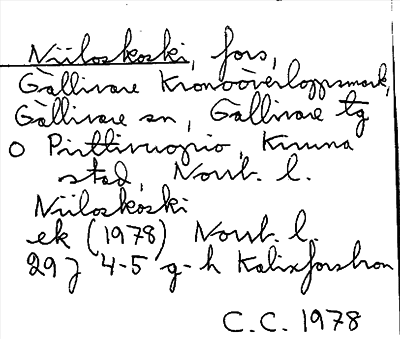 Niiloskoski, fors,
Gällivare Kronoöverloppsmark,
Gällivare sn, Gällivare tg
o Pirttivuopio, Kiruna
stad, Norrb. l.
Niiloskoski
ek (1978) Norrb. l.
29J 4-5 g-h Kalixforsbron
C.C. 1978